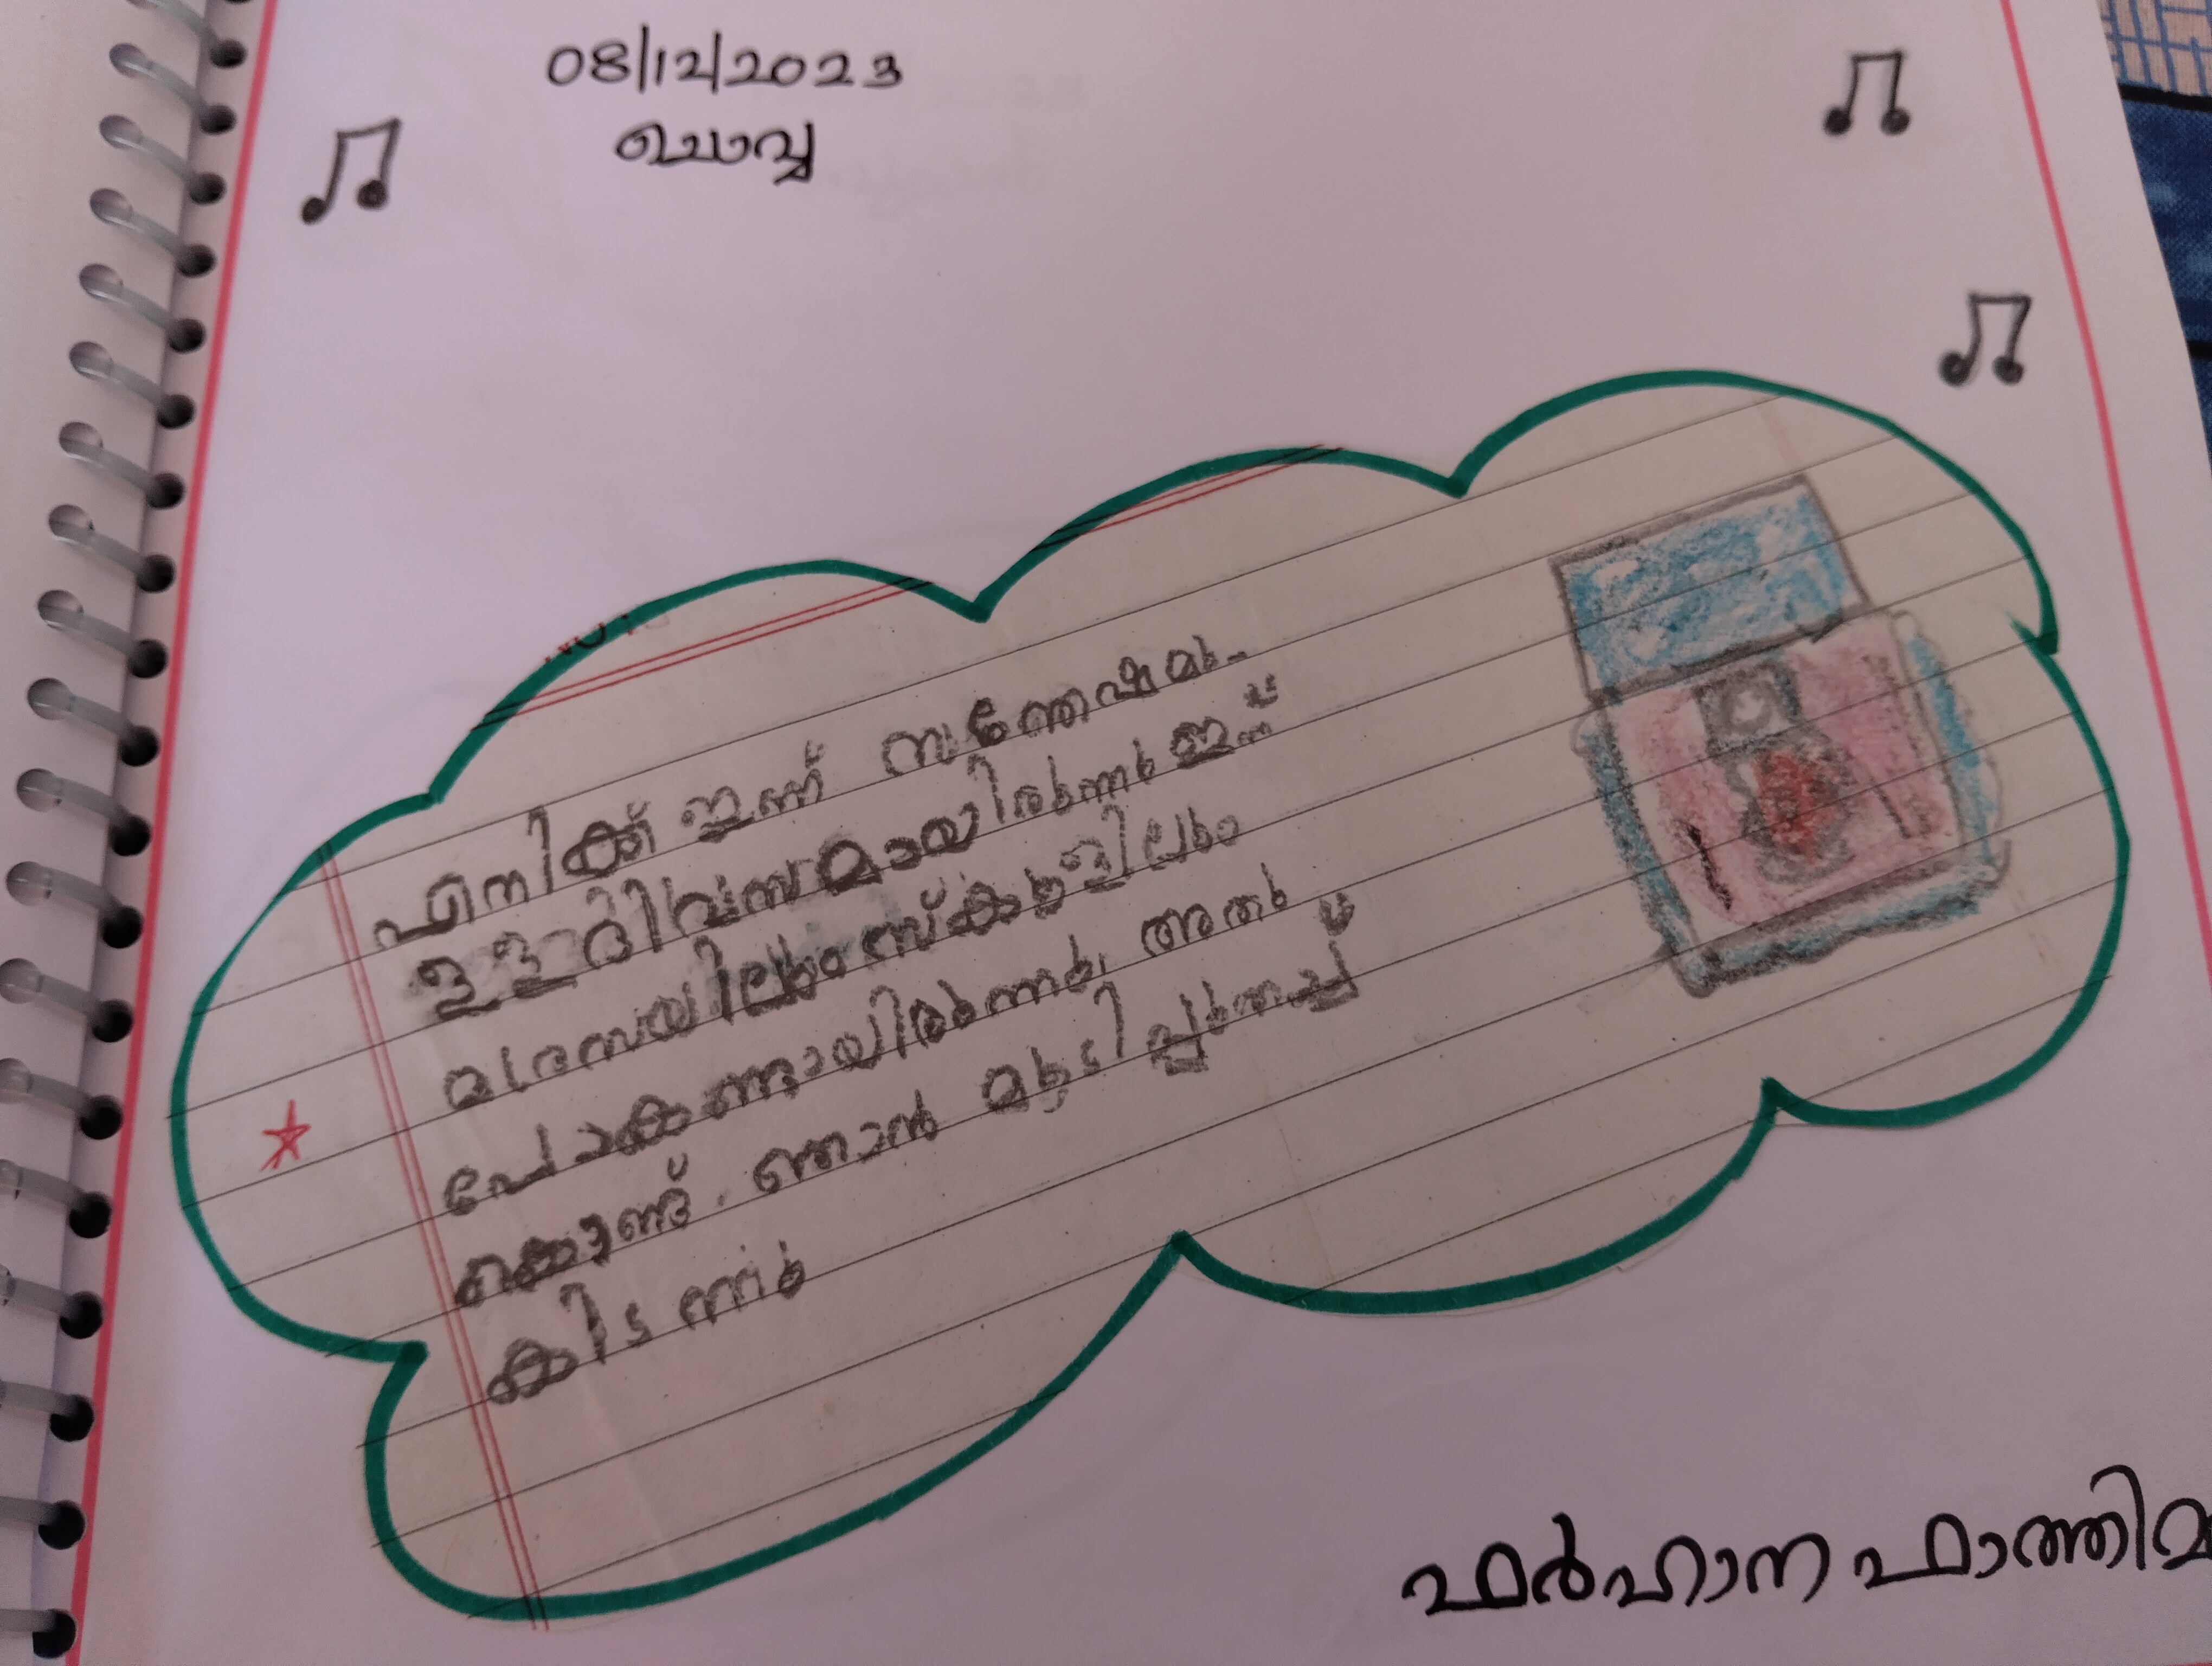 08/12/2023
ചൊവ്വ
എനിക്ക് ഇന്ന് സന്തേഷമു-
ള്ള ദിവസമായിരുന്നു ഇന്ന്
മദ്രസയിലും സ്കൂളിലും
പോകണ്ടായിരുന്നു. അതു
കൊണ്ട്. ഞാൻ മൂടിപ്പുതച്ച്
കിടന്നു
ഫർഹാന ഫാത്തിമ